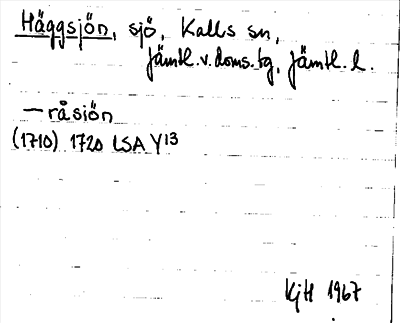 Häggsjön, sjö, Kalls sn,
Jämtl. v. doms. tg, Jämtl. l.
— råsiön
(1710) 1720 LSA Y13
KjH 1967